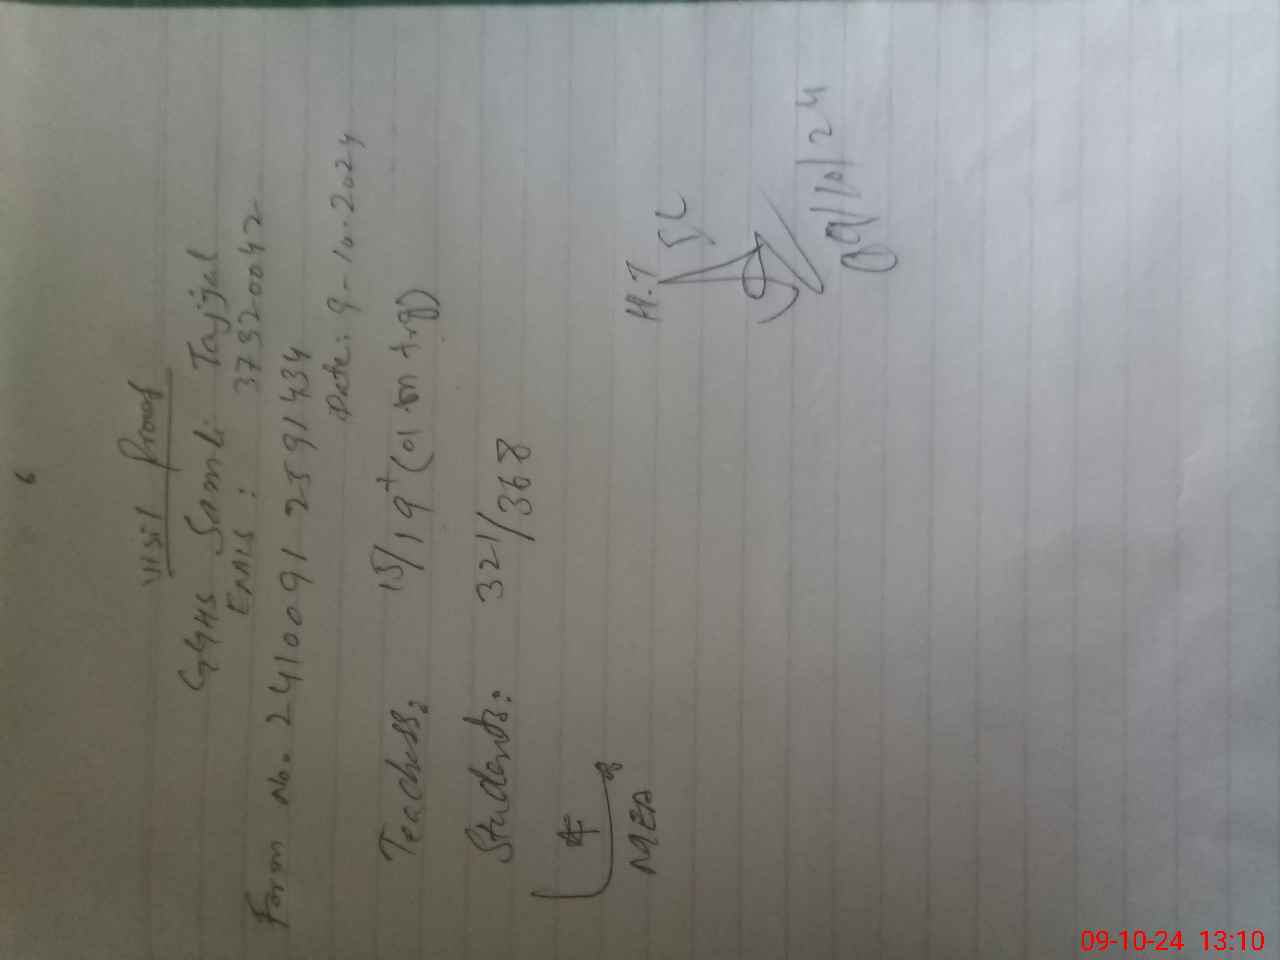 Visit Proof
GGHS Samli Tajjal
EMIS: 37320042
Form No. 2410091-2591434
Date: 9-10-2024
Teachers: 15/19+(01 on trg)
Students: 321/368
MEA
H.T
09/10/24
09-10-24 13:10